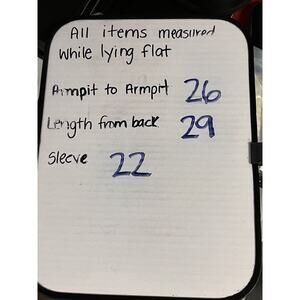 All items measured
while lying flat
Armpit to Armpit 26
Length from back 29
Sleeve 22